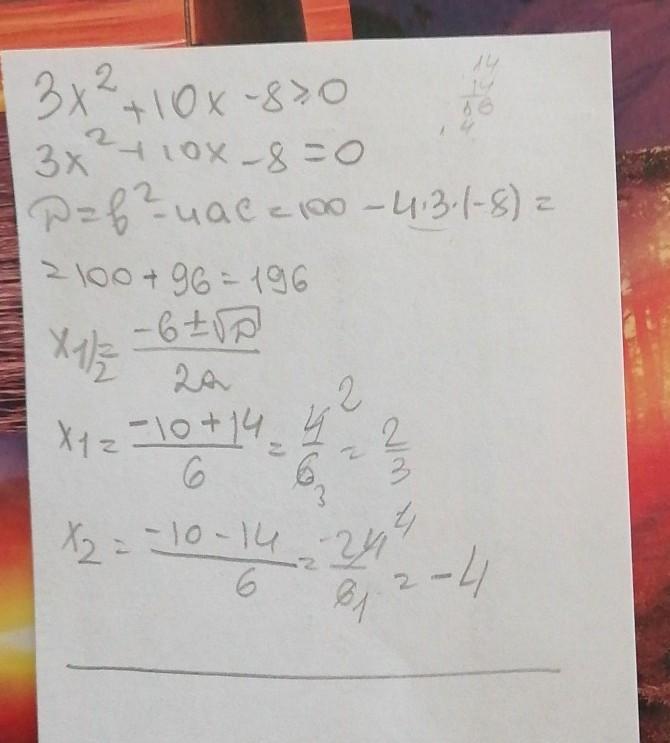 3x² + 10x - 8 > 0
3x² + 10x - 8 = 0
D = b² - 4ac = 100 - 4·3·(-8) =
= 100 + 96 = 196
x1/2 = (-b ± √D) / 2a
x1 = (-10 + 14) / 6 = 4 2 / 6 3 = 2/3
x2 = (-10 - 14) / 6 = -24 4 / 6 1 = -4
14
14